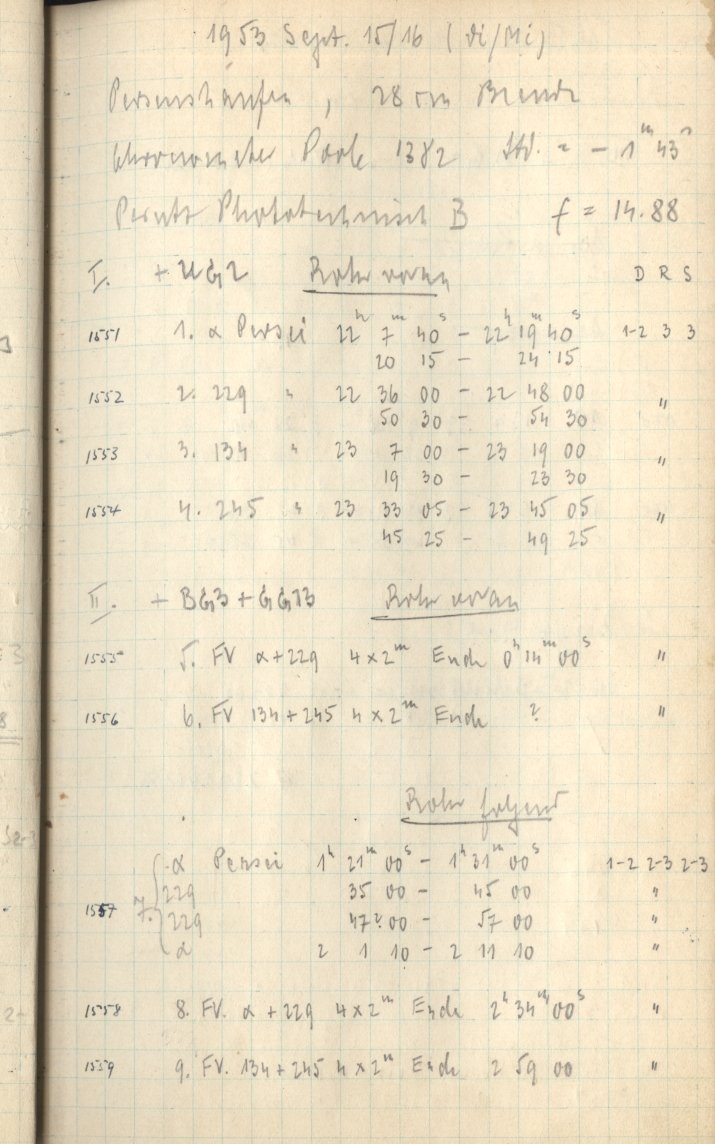 1953 Sept. 15/16 (Di/Mi)
Persushaufen, 28 cm Blende
Chronometer Poole 1382 Std. = - 1ᵐ 43ˢ
Perutz Phototechnisch B f = 14.88
I. + UG2 Rohr voran D R S
1551 1. α Persei 22ʰ 7ᵐ 40ˢ - 22ʰ 19ᵐ 40ˢ 1-2 3 3
20 15 - 24 15
1552 2. 229 " 22 36 00 - 22 48 00 "
50 30 - 54 30
1553 3. 134 " 23 7 00 - 23 19 00 "
19 30 - 23 30
1554 4. 245 " 23 33 05 - 23 45 05 "
45 25 - 49 25
II. + BG3 + GG13 Rohr voran
1555 5. FV α+229 4×2ᵐ Ende 0ʰ 14ᵐ 00ˢ "
1556 6. FV 134+245 4×2ᵐ Ende ? "
Rohr folgend
α Persei 1ʰ 21ᵐ 00ˢ - 1ʰ 31ᵐ 00ˢ 1-2 2-3 2-3
229 35 00 - 45 00 "
1557 7. 229 47? 00 - 57 00 "
α 2 1 10 - 2 11 10 "
1558 8. FV. α+229 4×2ᵐ Ende 2ʰ 34ᵐ 00ˢ "
1559 9. FV. 134+245 4×2ᵐ Ende 2 59 00 "